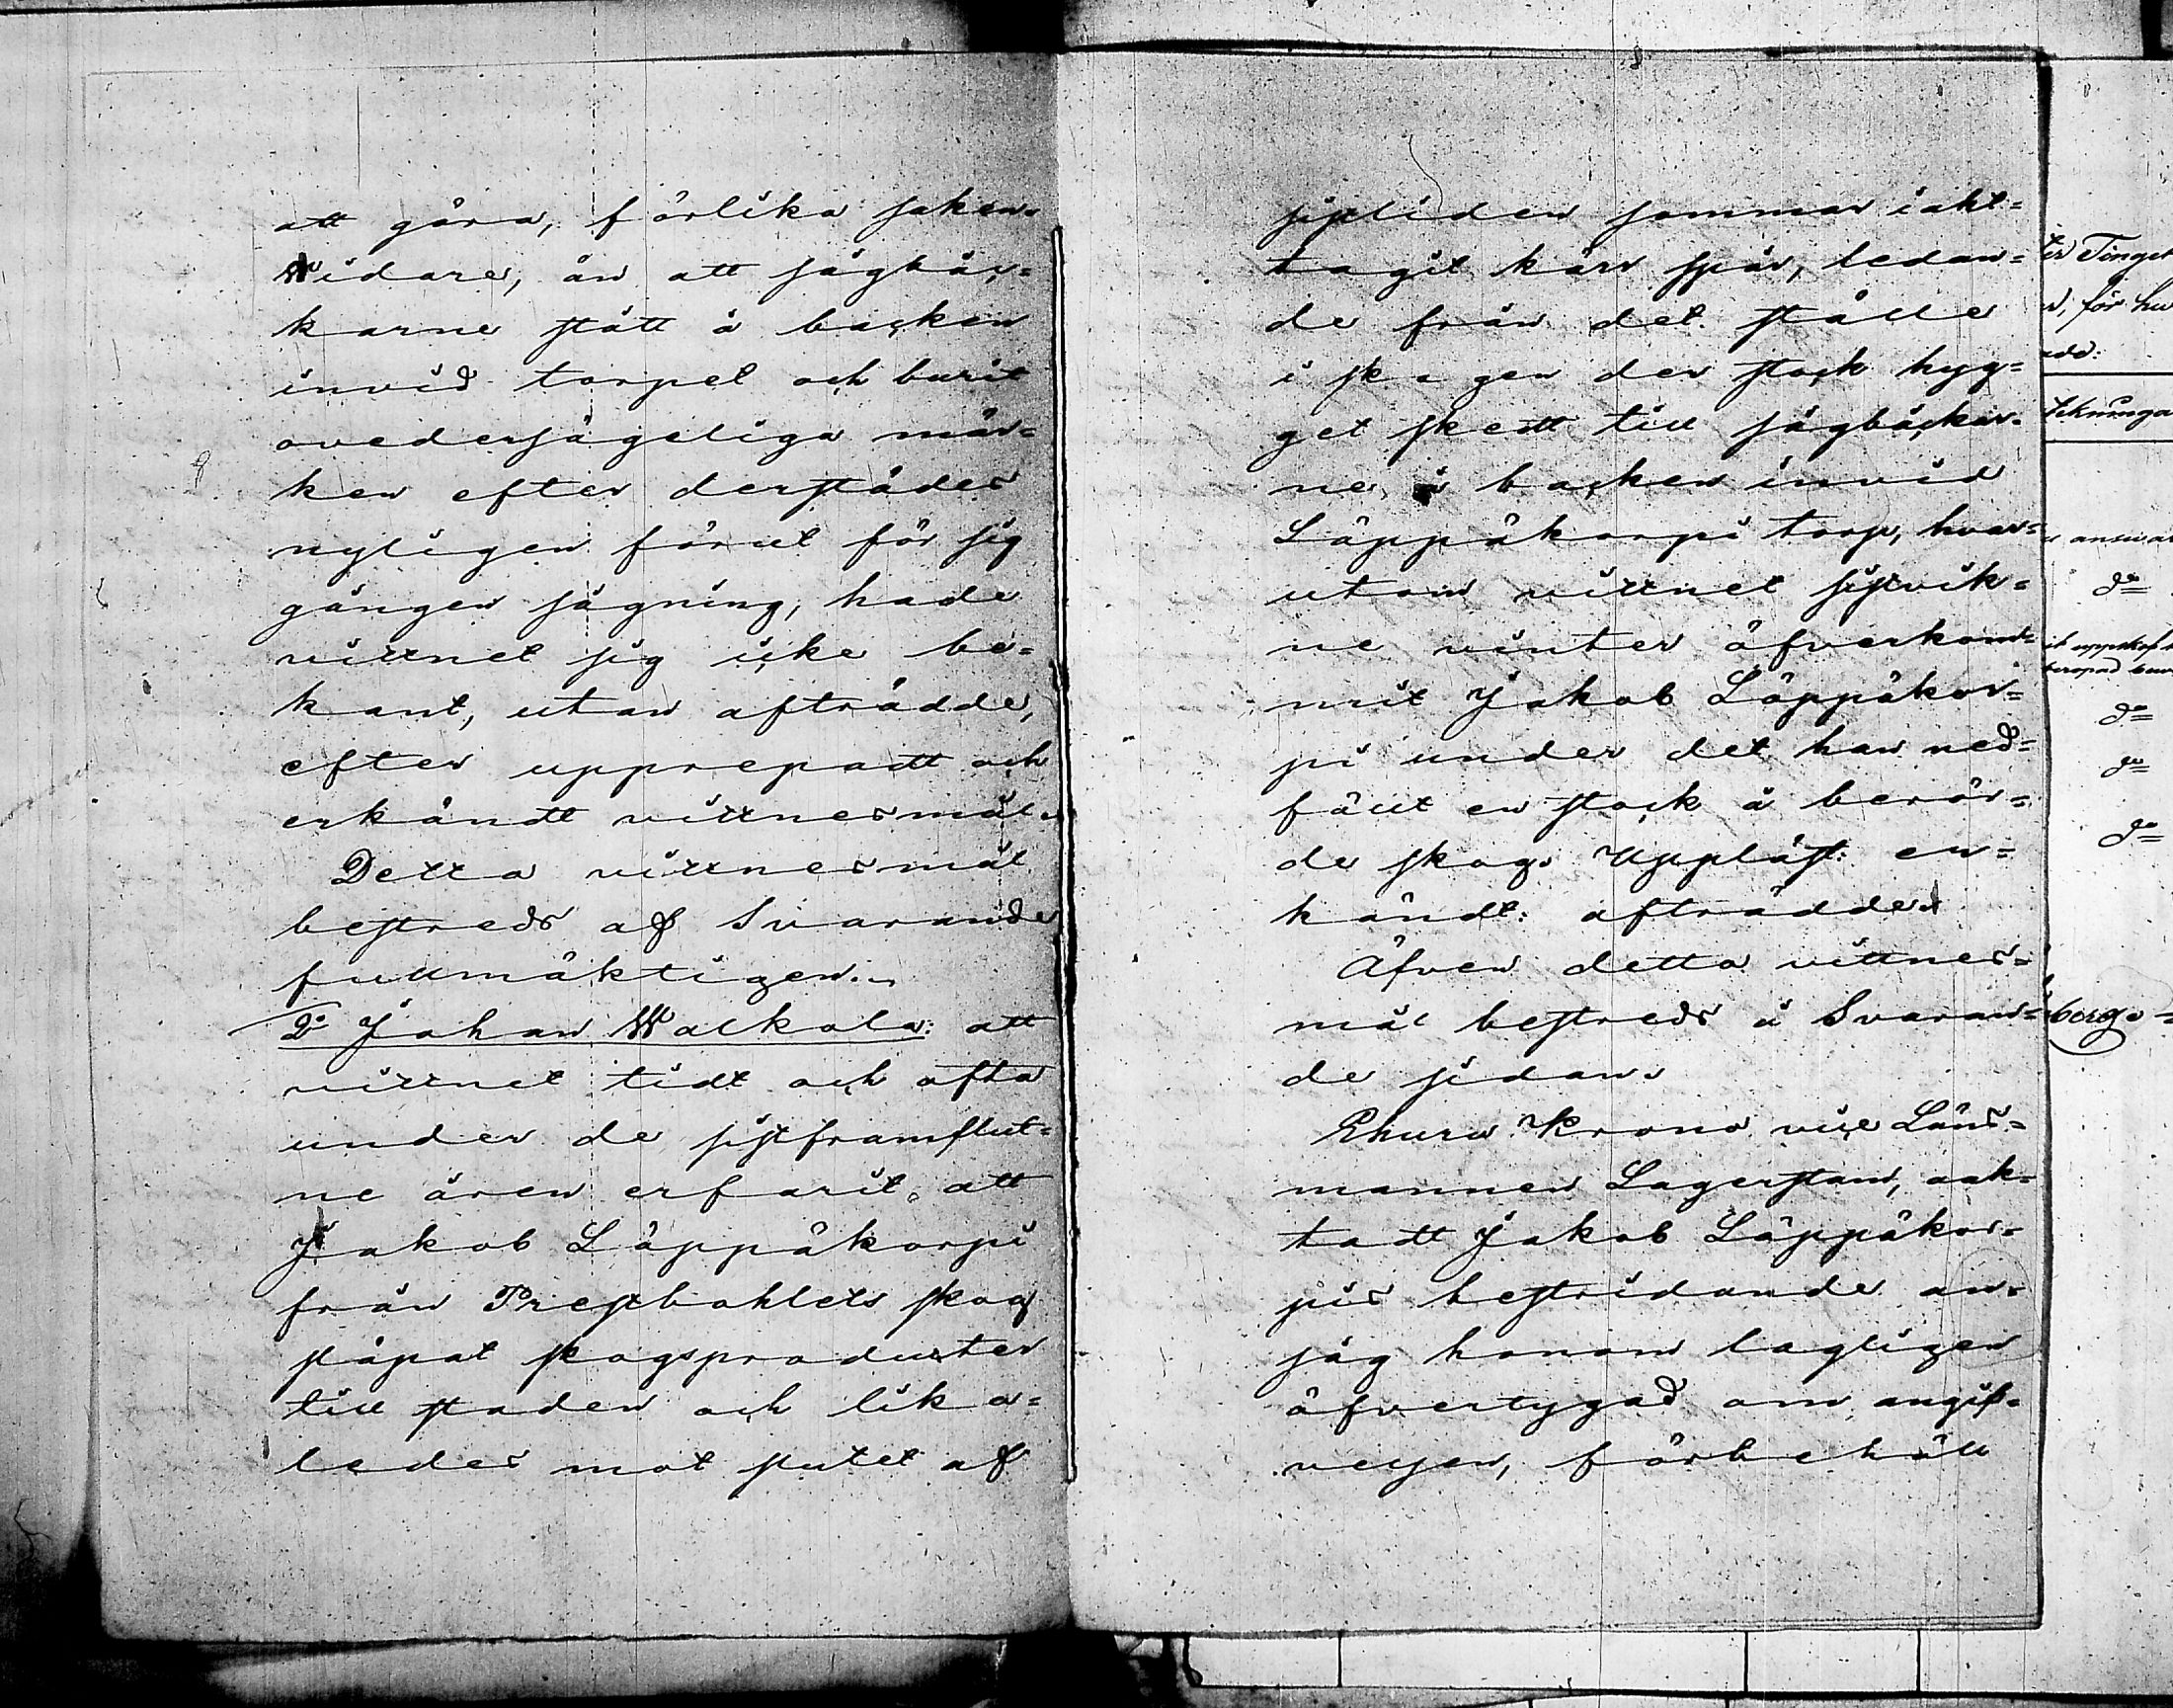 att göra, förlika saken.
Widare, än att sågbäc=
karne stått å backen
invid torpet och burit
ovedersägeliga mär=
ken efter derstädes
nyligen förut för sig
gången sågning, hade
vittnet sig icke be=
kant, utan afträdde,
efter upprepadt och
erkändt vittnesmål.
Detta vittnesmål
bestreds af Svarande
fullmäktigen.
2o Johan Walkola: att
vittnet tidt och ofta
under de sistframflut=
ne åren erfarit, att
Jakob Läppäkorpi
från Prestbohlets skog
släpat skogsprodukter
till staden och lika=
ledes mot slutet af
sistliden sommar iakt=
tagit kärr spår, ledan=
de från det ställe
i skogen der stock hyg=
get skett till sågbäckar=
ne å backen invid
Läppäkorpi torp, hvar=
utom vittnet sistvik=
ne vinter öfverkom=
mit Jakob Läppäkor=
pi under det han ned=
fällt en stock å berör=
de skog. Uppläst: er=
kändt: afträdde.
Äfven detta vittnes=
mål bestreds å Svaran=
de sidan.
Ehuru Krono vice Läns=
mannen Lagerstam, oak=
tadt Jakob Läppäkor=
pis bestridande an=
såg honom lagligen
öfvertygad om angif=
velsen, förbehöll
Tinget
, för hu
do
do
do
do
berg